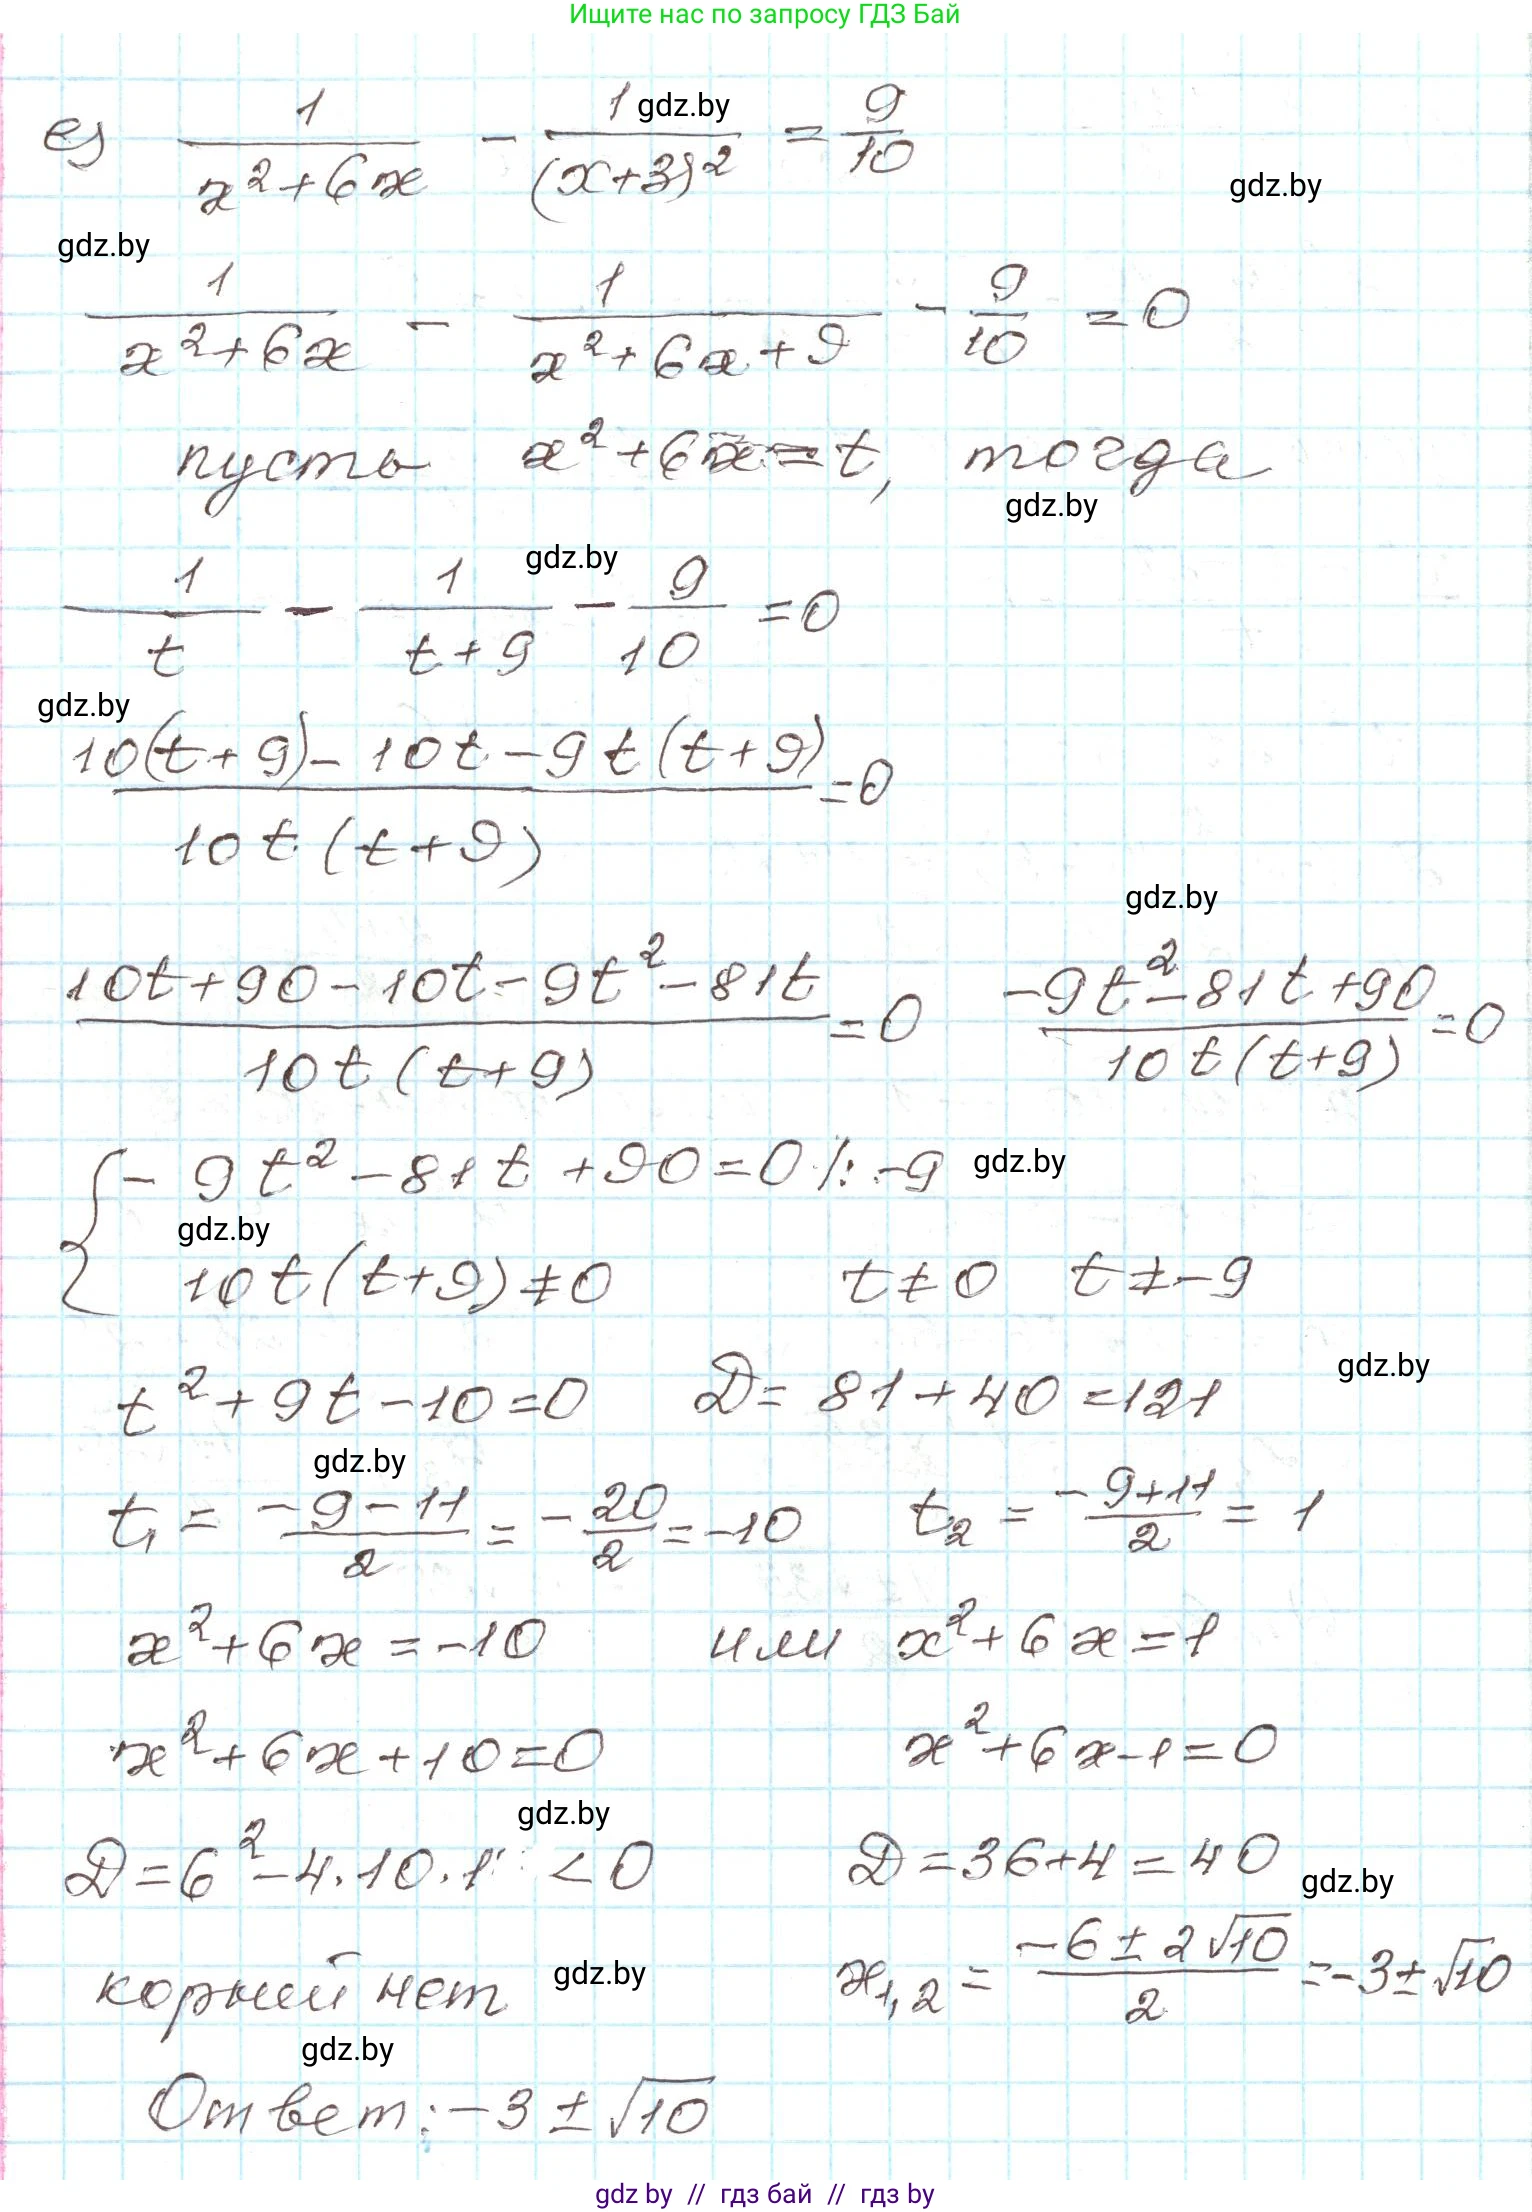 Ищите нас по запросу ГДЗ Бай
е) 1/(x²+6x) - 1/(x+3)² = 9/10
gdz.by
gdz.by
gdz.by
1/(x²+6x) - 1/(x²+6x+9) - 9/10 = 0
пусть x²+6x=t, тогда
gdz.by
gdz.by
1/t - 1/(t+9) - 9/10 = 0
gdz.by
(10(t+9)-10t-9t(t+9))/(10t(t+9)) = 0
gdz.by
(10t+90-10t-9t²-81t)/(10t(t+9)) = 0 (-9t²-81t+90)/(10t(t+9)) = 0
{ -9t²-81t+90=0 |: -9 gdz.by
gdz.by
10t(t+9)≠0 t≠0 t≠-9
gdz.by
t²+9t-10=0 D=81+40=121
gdz.by
t₁ = (-9-11)/2 = -20/2 = -10 t₂ = (-9+11)/2 = 1
x²+6x=-10 или x²+6x=1
x²+6x+10=0 x²+6x-1=0
gdz.by
D=6²-4·10·1 <0 D=36+4=40
gdz.by
корний нет gdz.by x₁,₂ = (-6±2√10)/2 = -3±√10
gdz.by
Ответ: -3±√10
gdz by // гдз бай // гдз by